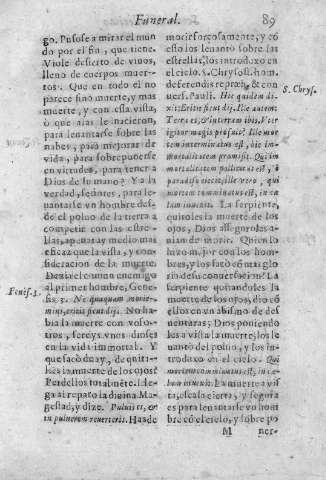 Funeral. 89
go. Pusose a mirar el mun
do por el fin, que tiene.
Viole desierto de viuos,
lleno de cuerpos muer-
tos. Que en todo el no
parece sino muerte, y mas
muerte, y con esta vista,
ò que alas le nacieron,
para leuantarse sobre las
nubes, para mejorar de
vida, para sobreponerse
en virtudes, para tener a
Dios de su mano? Ya la
verdad, señores, para le-
uantarse vn hombre des-
de el poluo de la tierra a
competir con las estre-
llas, apenas ay medio mas
eficaz que la vista, y con-
sideracion de la muerte.
enemigo
al primer hombre, Gene-
Genes. 3.
sis 3. Ne quaquam morie-
mini, eritis sicut dij. No ha-
bia la muerte con voso-
tros, sereys vnos dioses
en la vida inmortal. Y
que sacò de ay, de quitar-
les la muerte de los ojos?
Perdellos totalmẽte. Lle-
ga al reparo la diuina Ma-
gestad, y dize. Puluis es, &
in puluerem reuerteris. Has de
morir forçosamente, y cõ
esto los leuantò sobre las
estrellas, los introduxo en
el cielo. S. Chrysost. hom.
S. Chrys.
uers. Pauli. Hic quidem di-
xit: Eritis sicut dij. Ille autem:
Terra es, & in terram ibis. V
Ille mor
tem interminatus est, hic in-
mortalitatem promisit. Qui im
mortalitatem pollicitus est, è
paradiso eiecit, ille vero, qui
mortem comminatus est, in cæ
lum inuexit. La serpiente,
quitoles la muerte de los
ojos, Dios assegurolos a-
uian de morir. Quien lo
hizo mejor con los hom-
bres, y los sacò cõ mas glo
ria de su conuersacion? La
serpiente quitandoles la
muerte de los ojos, dio cõ
ellos en vn abismo de des-
uenturas; Dios poniendo
les a vista la muerte, los le
uantò del poluo, y los in-
troduxo en el cielo. Qui
mortem comminatus est, in cæ-
lum inuexit. La muerte a vis
ta, escala cierta, y segura
es para leuantarse vn hom
bre cõ el cielo, y sobre po
M ner-